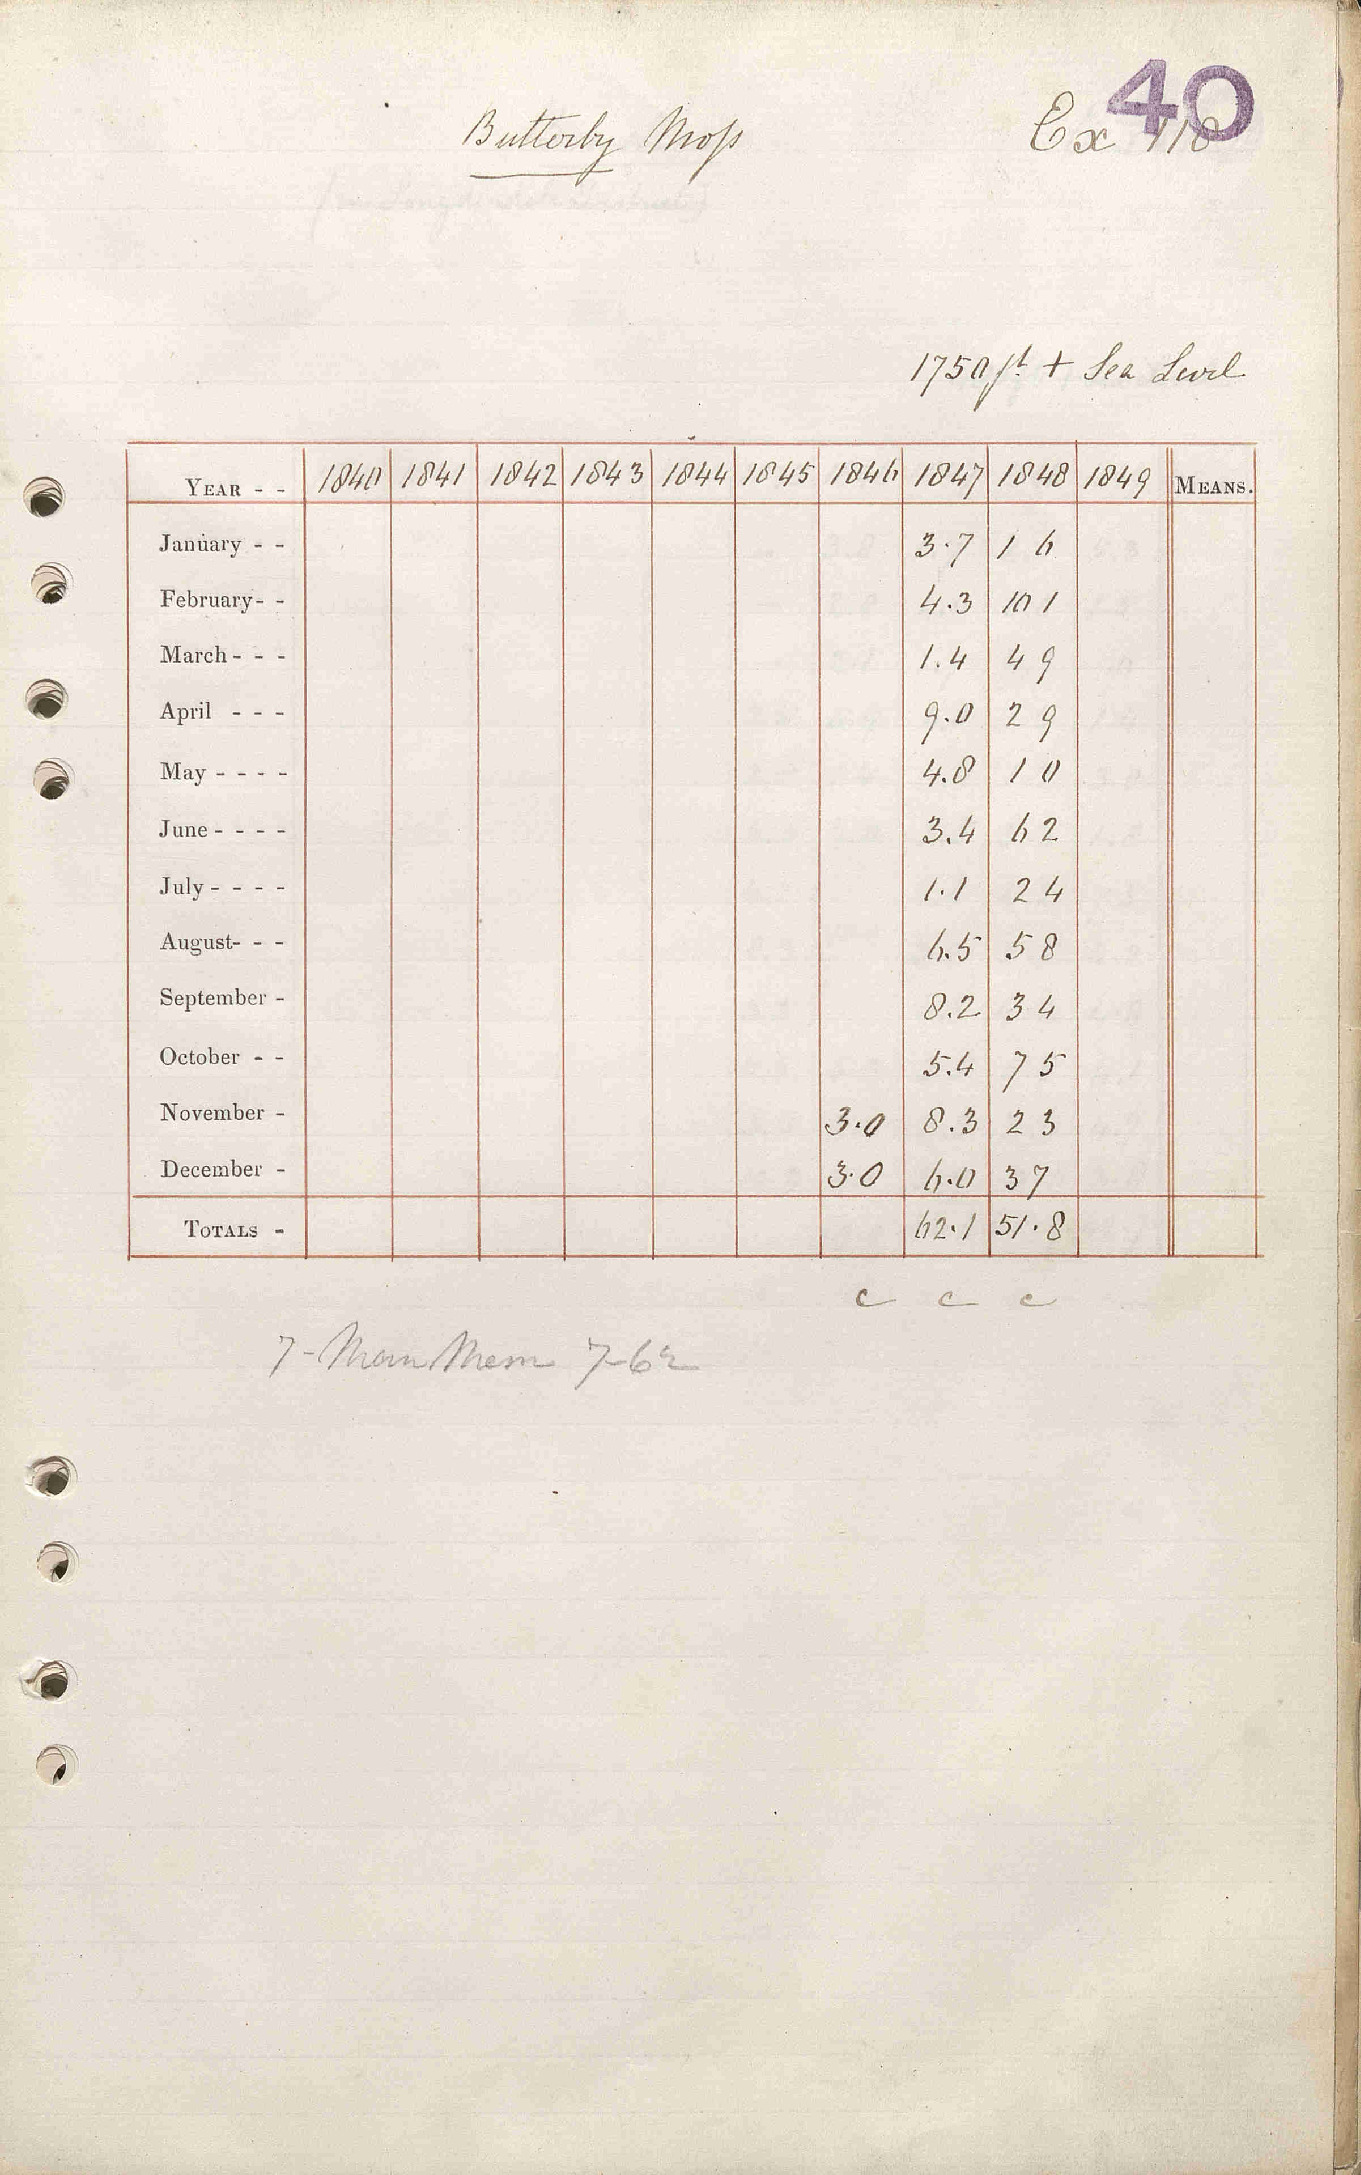 40
Butterby Moſs
Ex 118
1750 ft + Sea Level
YEAR - - 1840 1841 1842 1843 1844 1845 1846 1847 1848 1849 MEANS.
January - - 3.7 1 6
February- - 4.3 10 1
March- - - 1.4 4 9
April - - - 9.0 2 9
May - - - - 4.8 1 0
June - - - - 3.4 6 2
July - - - - 1.1 2 4
August- - - 6.5 5 8
September - 8.2 3 4
October - - 5.4 7 5
November - 3.0 8.3 2 3
December - 3.0 6.0 3 7
TOTALS - 62.1 51.8
c c c
7-
Mem 7-62